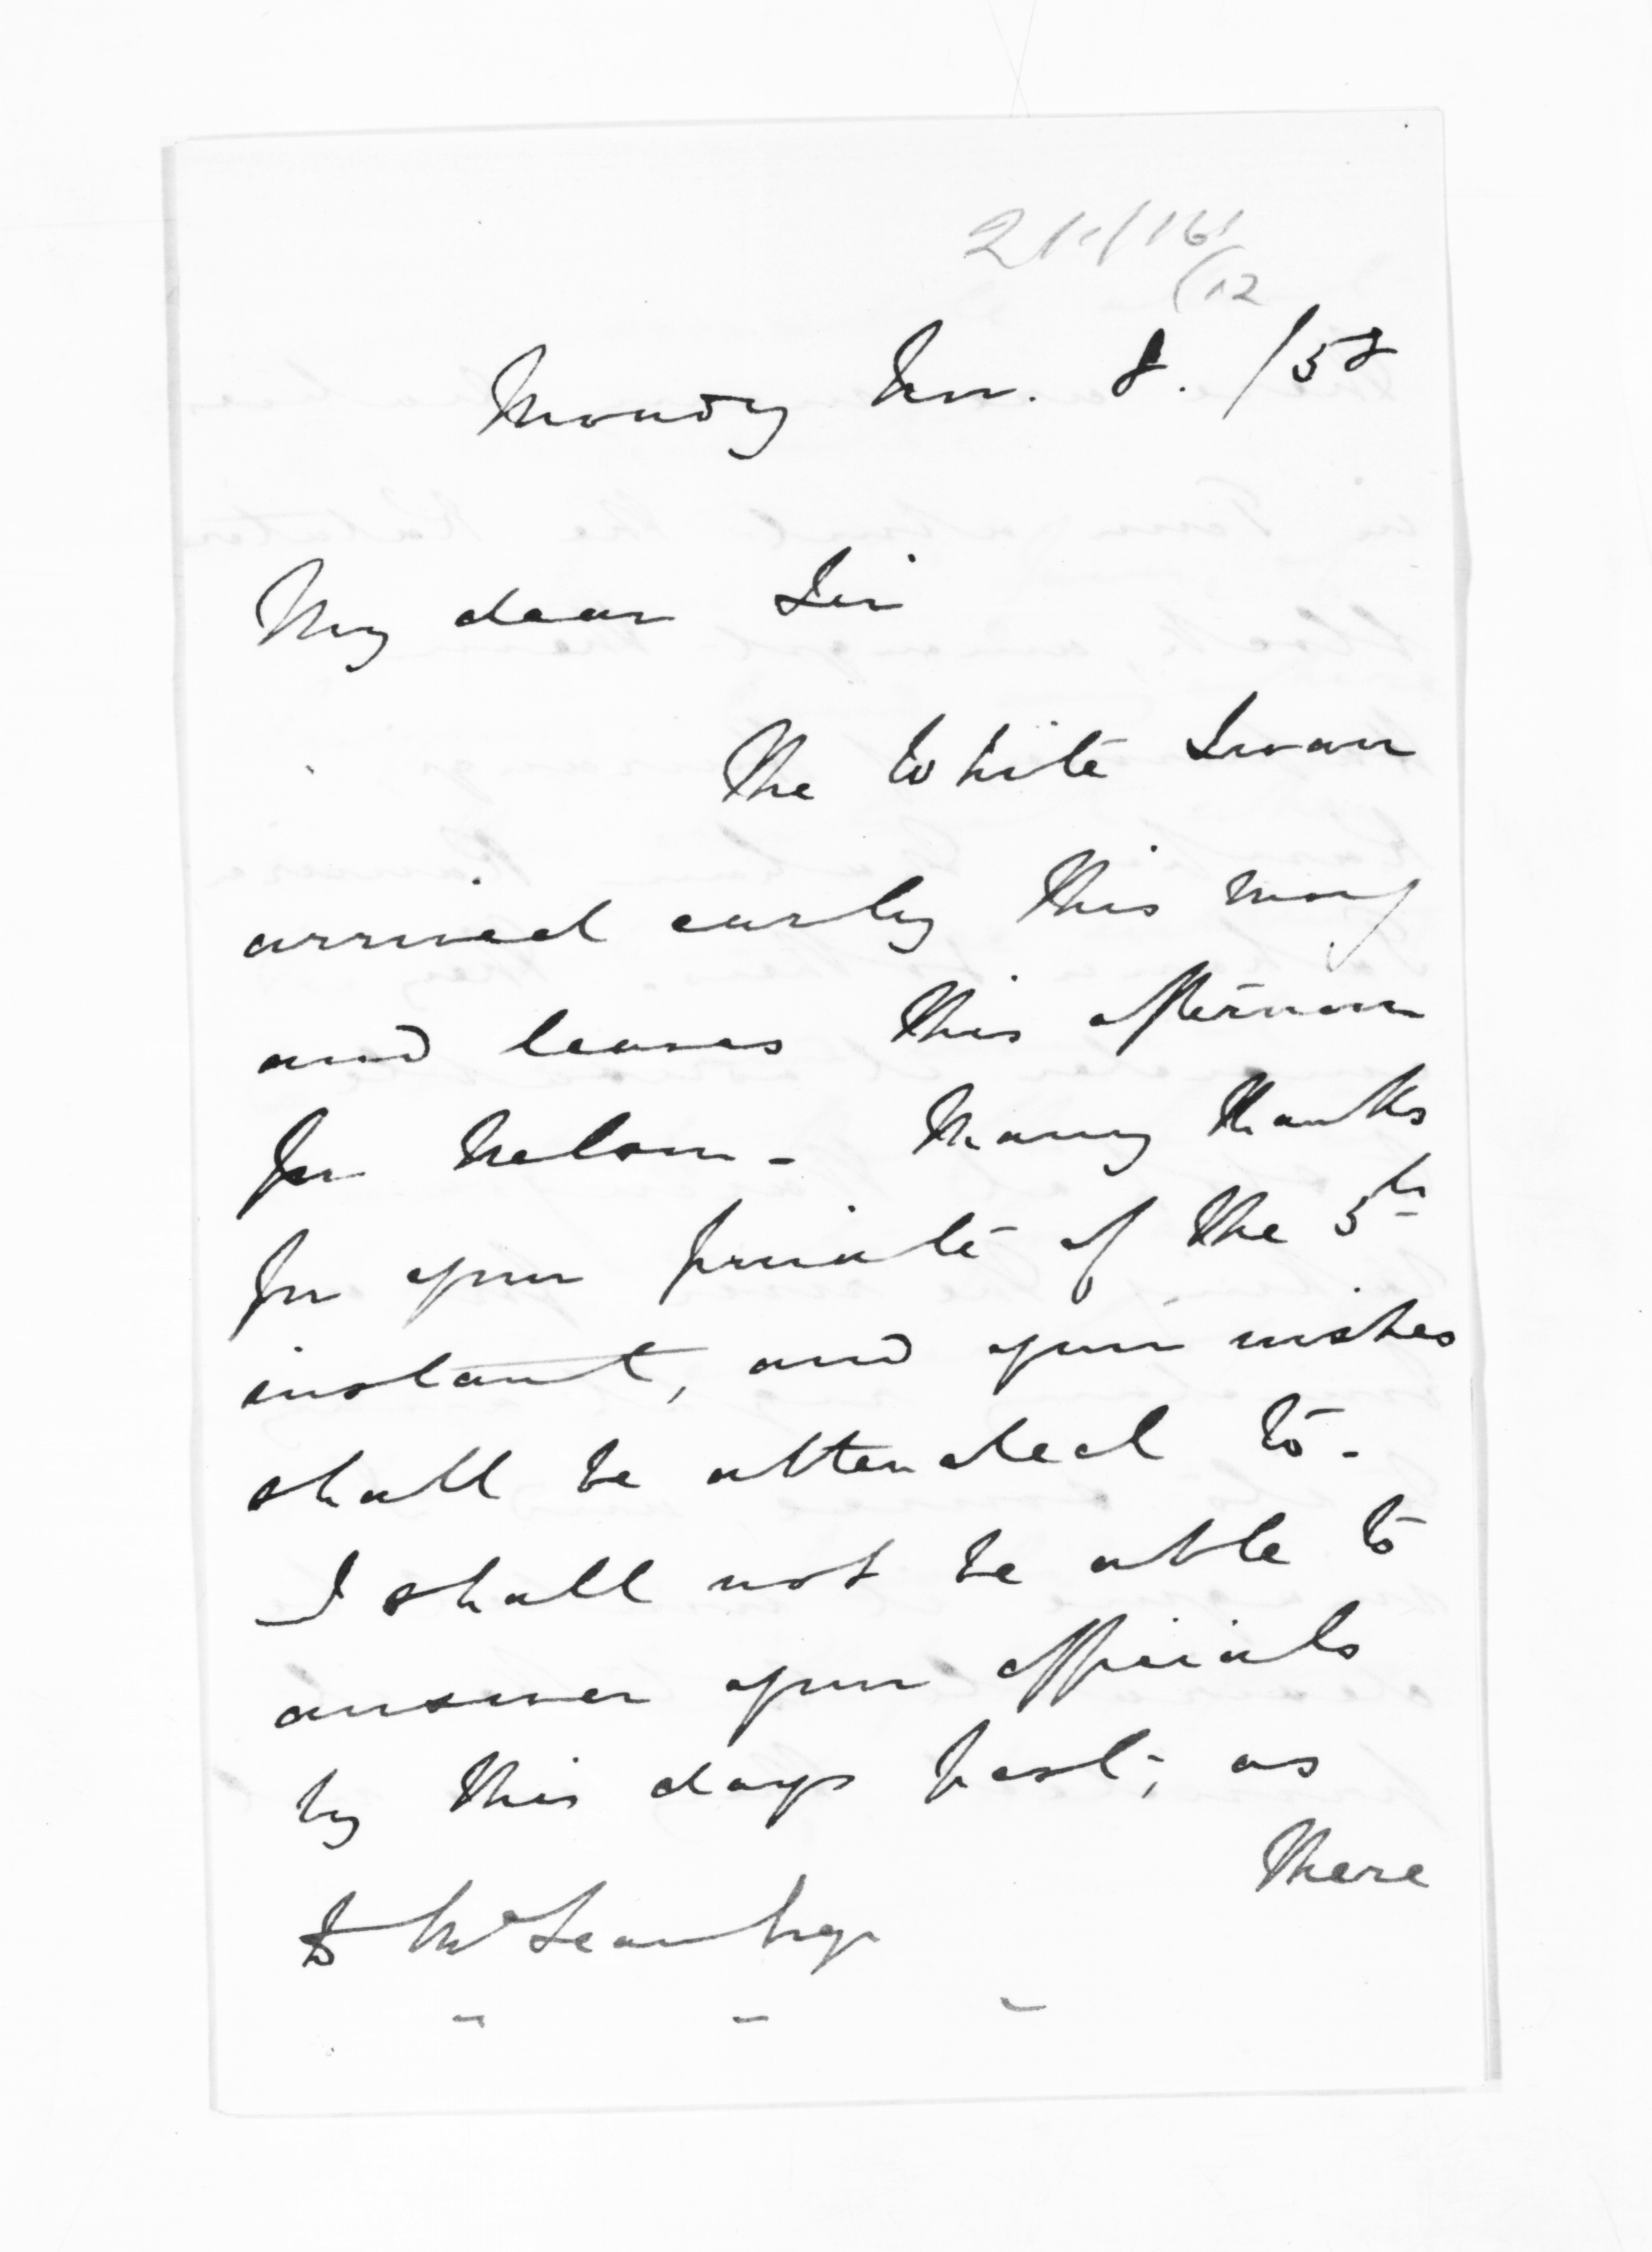 Monday Nov. 8. /58
My dear Sir
The White Swan
arrived early this morng
and leaves this afternoon
for Nelson - Many thanks
for your private of the 5th
instant, and your wishes
shall be attended to -
I shall not be able to
answer your officials
by this days post; as
there
D McLean Esqr